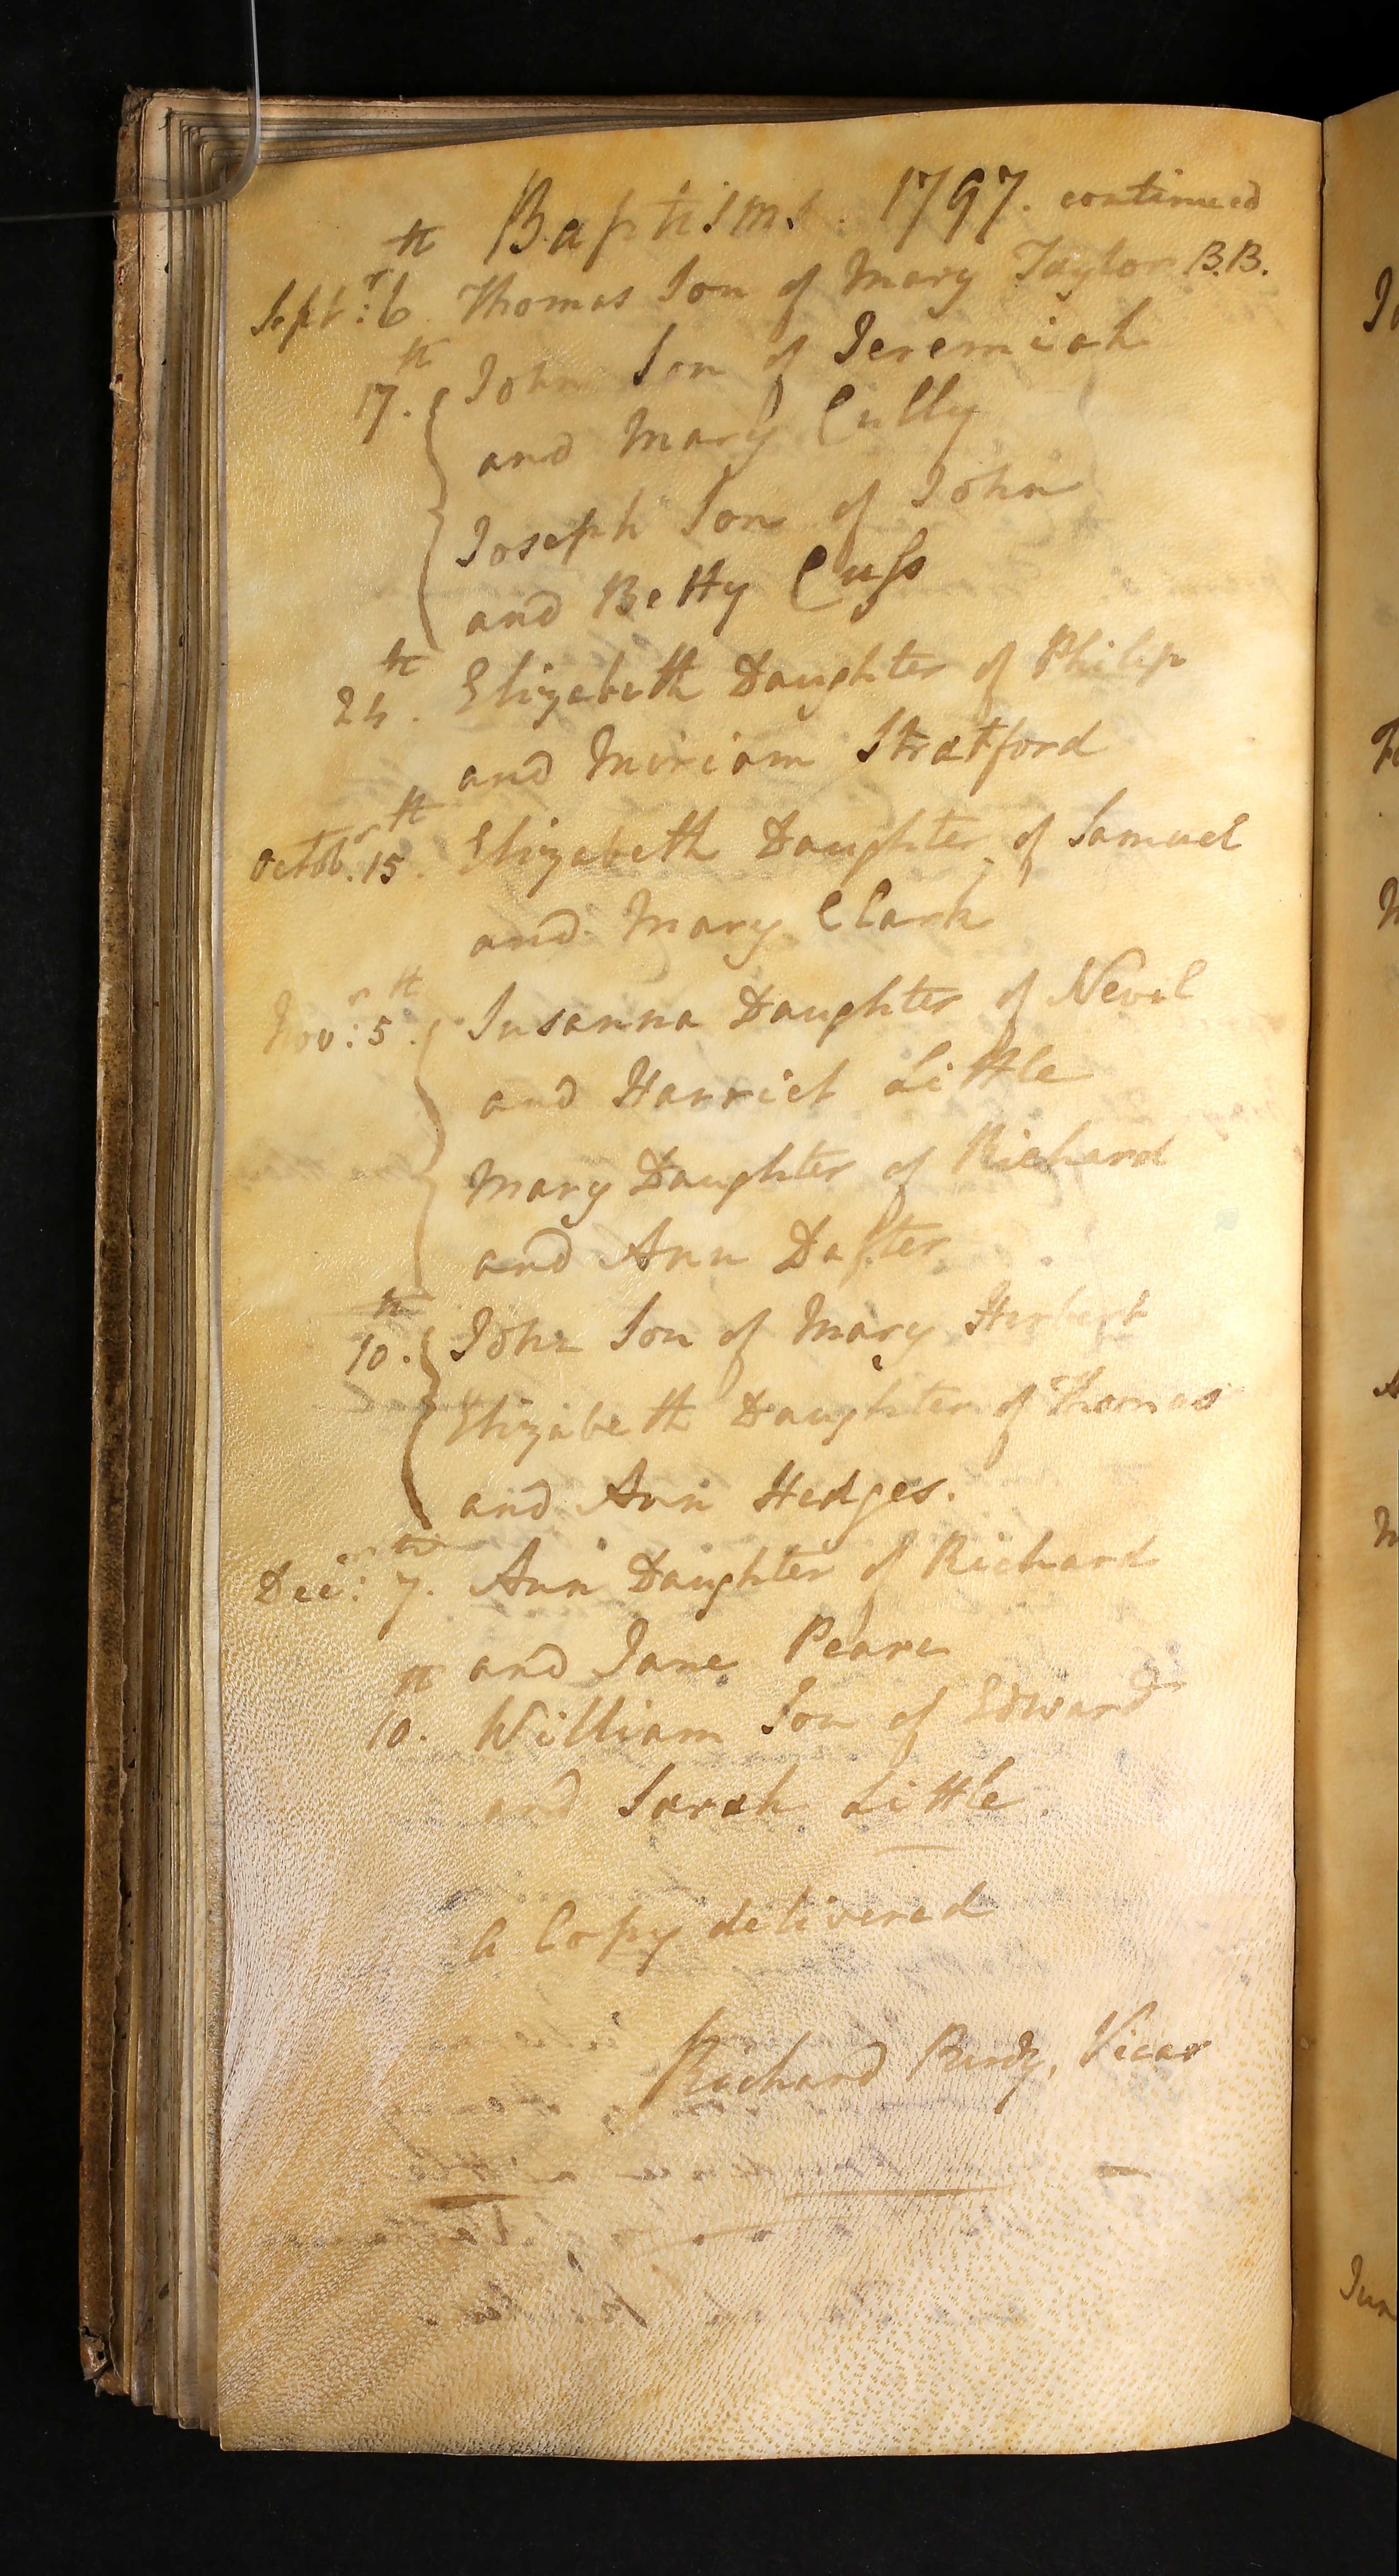 Baptisms. 1797. continued
Septr: 6th Thomas Son of Mary Taylor B.B.
17th. John Son of Jeremiah
and Mary Cully
Joseph Son of John
and Betty Cuſs
24th. Elizabeth Daughter of Philip
and Miriam Stratford
Octobr. 15th. Elizabeth Daughter of Samuel
and Mary Clark
Novr: 5th. Susanna Daughter of Nevil
and Harriet Little
Mary Daughter of Richard
and Ann Dafter
10th. John Son of Mary Herbert
Elizabeth Daughter of Thomas
and Ann Hedges.
Decr: 7th. Ann Daughter of Richard
and Jane Pearce
10th. William Son of Edward
and Sarah Little.
A Copy delivered
Richard Vicar